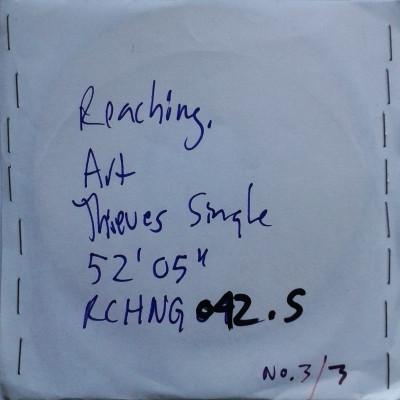 Reaching.
Art
Thieves Single
52'05"
RCHNG 042.S
No. 3/3